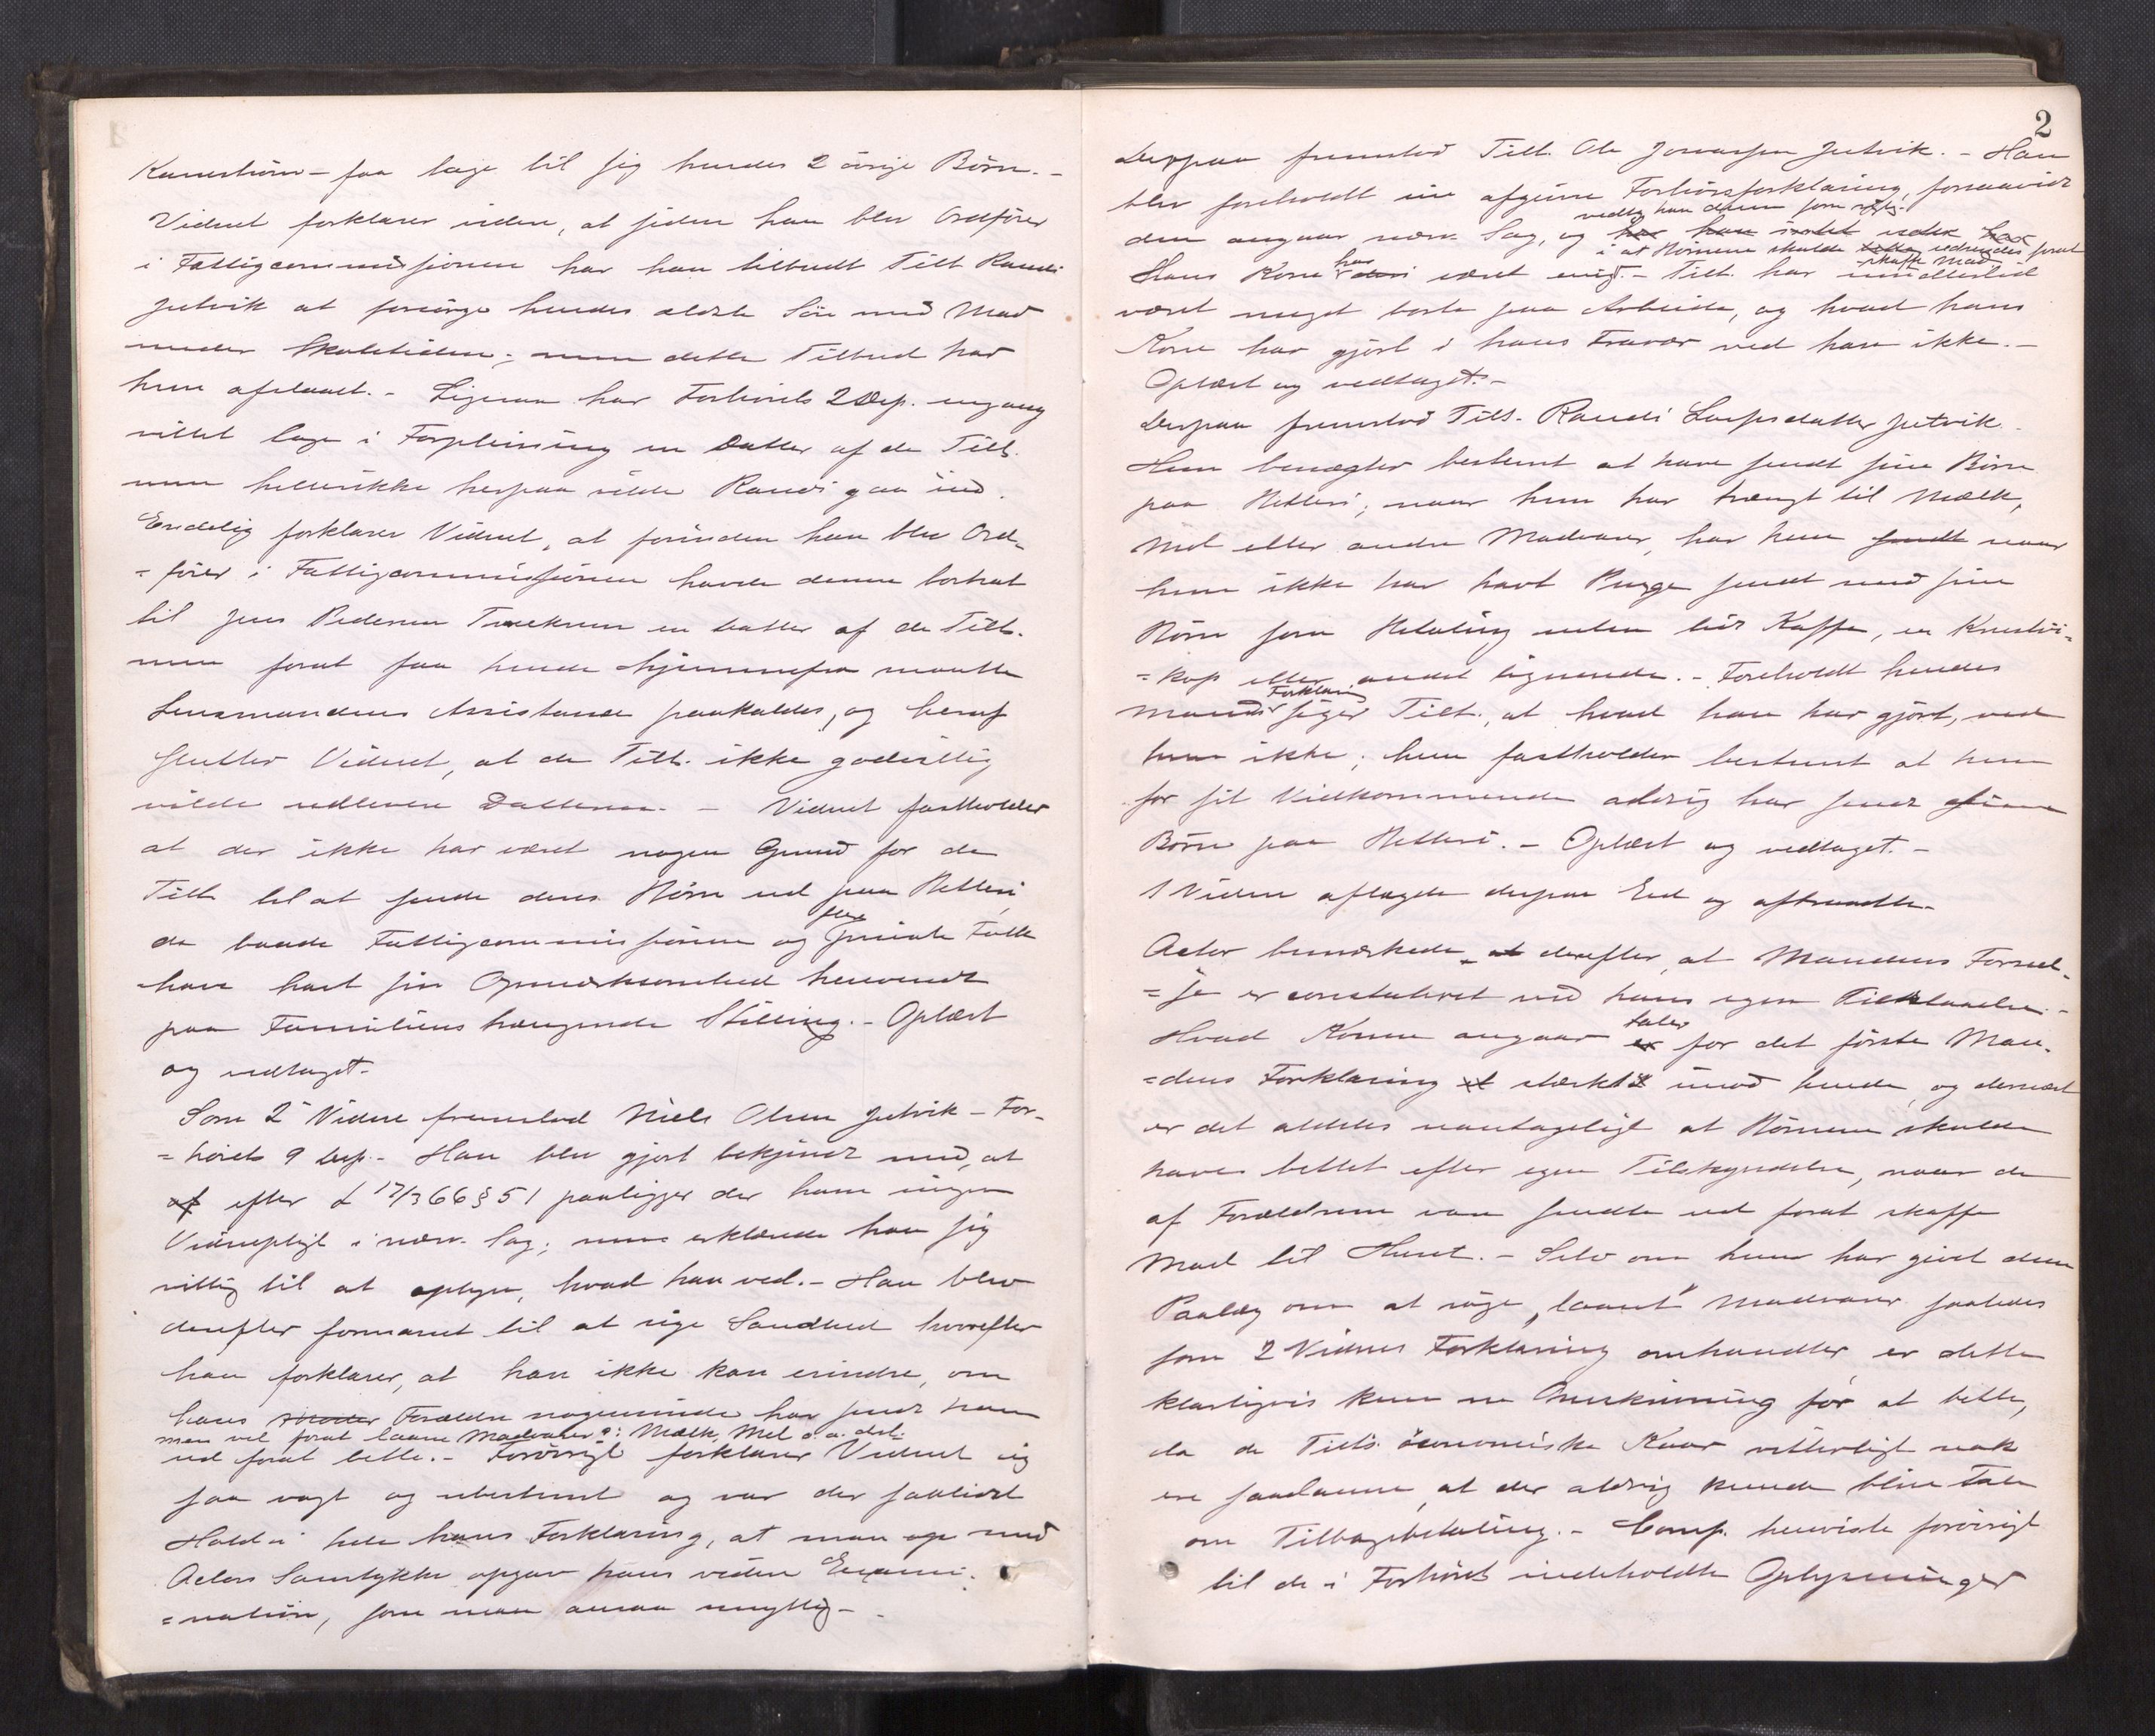 Kanestrøm – faa tage til sig hendes 2 øvrige Børn. –
Vidnet forklarer videre, at siden han blev Ordfører
i Fattigcommissionen har han tilbudt Tilt Randi
Jutvik at forsørge hendes ældste Søn med Mad
under Skoletiden; men dette Tilbud har
hun afslaaet. – Ligesaa har Forhørets 2 Dep. engang
villet tage i Forpleining en Datter af de Tilt.
men hellerikke herpaa vilde Randi gaa ind.
Endelig forklarer Vidnet, at førinden han blev Ord-
=fører i Fattigcommissionen havde denne bortsat
til Jens Pedersen en Datter af de Tilt.
men forat faa hende hjemmefra maatte
Lensmandens Assistance paakaldes, og heraf
slutter Vidnet, at de Tilt. ikke godvillig
vilde udlevere Datteren. – Vidnet fastholder
at der ikke har været nogen Grund for de
Tilt til at sende deres Børn ud paa Betleri,
da baade Fattigcommissionen og flere private Folk
have havt sin Opmærksomhed henvendt
paa Familiens trængende Stilling. – Oplæst
og vedtaget. –
Som 2det Vidne fremstod Niels Olsen Jutvik – For-
=hørets 9 Dep. – Han blev gjort bekjendt med, at
af efter L 17/3 66 § 51 paaligger der ham ingen
Vidnepligt i nærv. Sag; men erklærede han sig
villig til at oplyse, hvad han ved. – Han blev
derefter formanet til at sige Sandhed hvorefter
han forklarer, at han ikke kan erindre, om
hans Forældre nogensinde har sendt ham
men vel forat laane Madvarer o: Mælk, Mel o.a. desl.
ud forat betle. – Forøvrigt forklarer Vidnet sig
saa vagt og ubestemt og var der saalidet
Hold i hele hans Forklaring, at man op med
Actors Samtykke opgav hans videre Exami-
=nation, som man ansaa unyttig. –
2
Derpaa fremstod Tilt. Ole Jonassen Jutvik. – Han
blev foreholdt sin afgivne Forhørsforklaring, forsaavidt
vedtog han denne som rigtig.
den angaar nærv. Sag, og har han intet videre har
i at Børnene skulde betle udsendes forat
skaffe Mad
Hans Kone har deri været enig. – Tilt. har imidlertid
været meget borte paa Arbeide, og hvad hans
Kone har gjort i hans Fravær ved han ikke. –
Oplæst og vedtaget. –
Derpaa fremstod Tilt. Randi Larsdatter Jutvik.
Hun benægter bestemt at have sendt sine Børn
paa Betleri; naar hun har trængt til Mælk,
Mel eller andre Madvarer, har hun sendt naar
hun ikke har havt Penge sendt med sine
Børn som Betaling enten lidt Kaffe, en
=kop eller andet lignende. – Foreholdt hendes
Mands Forklaring siger Tilt., at hvad han har gjort, ved
hun ikke; hun fastholder bestemt at hun
for sit Vidkommende aldrig har sendt sine
Børn paa Betleri. – Oplæst og vedtaget. –
1 Vidne aflagde derpaa Ed og aftraadte. –
Actor bemærkede at derefter, at Mandens Forseel-
=se er constateret ved hans egen Tilstaaelse. –
Hvad Konen angaar er taler for det første Man-
=dens Forklaring stærkt imod hende, og dernæst
er det aldeles uantageligt at Børnene skulde
have betlet efter egen Tilskyndelse, naar de
af Forældrene vare sendte ud forat skaffe
Mad til Huset. – Selv om hun har givet dem
Paalæg om at søge „laant" Madvarer saaledes
som 2 Vidnes Forklaring omhandler er dette
klarligvis kun en Omskrivning for at betle,
da de Tilt's økonomiske Kaar vitterligt nok
ere saadanne, at der aldrig kunde blive Tale
om Tilbagebetaling. – Comp. henviste forøvrigt
til de i Forhøret indeholdte Oplysninger